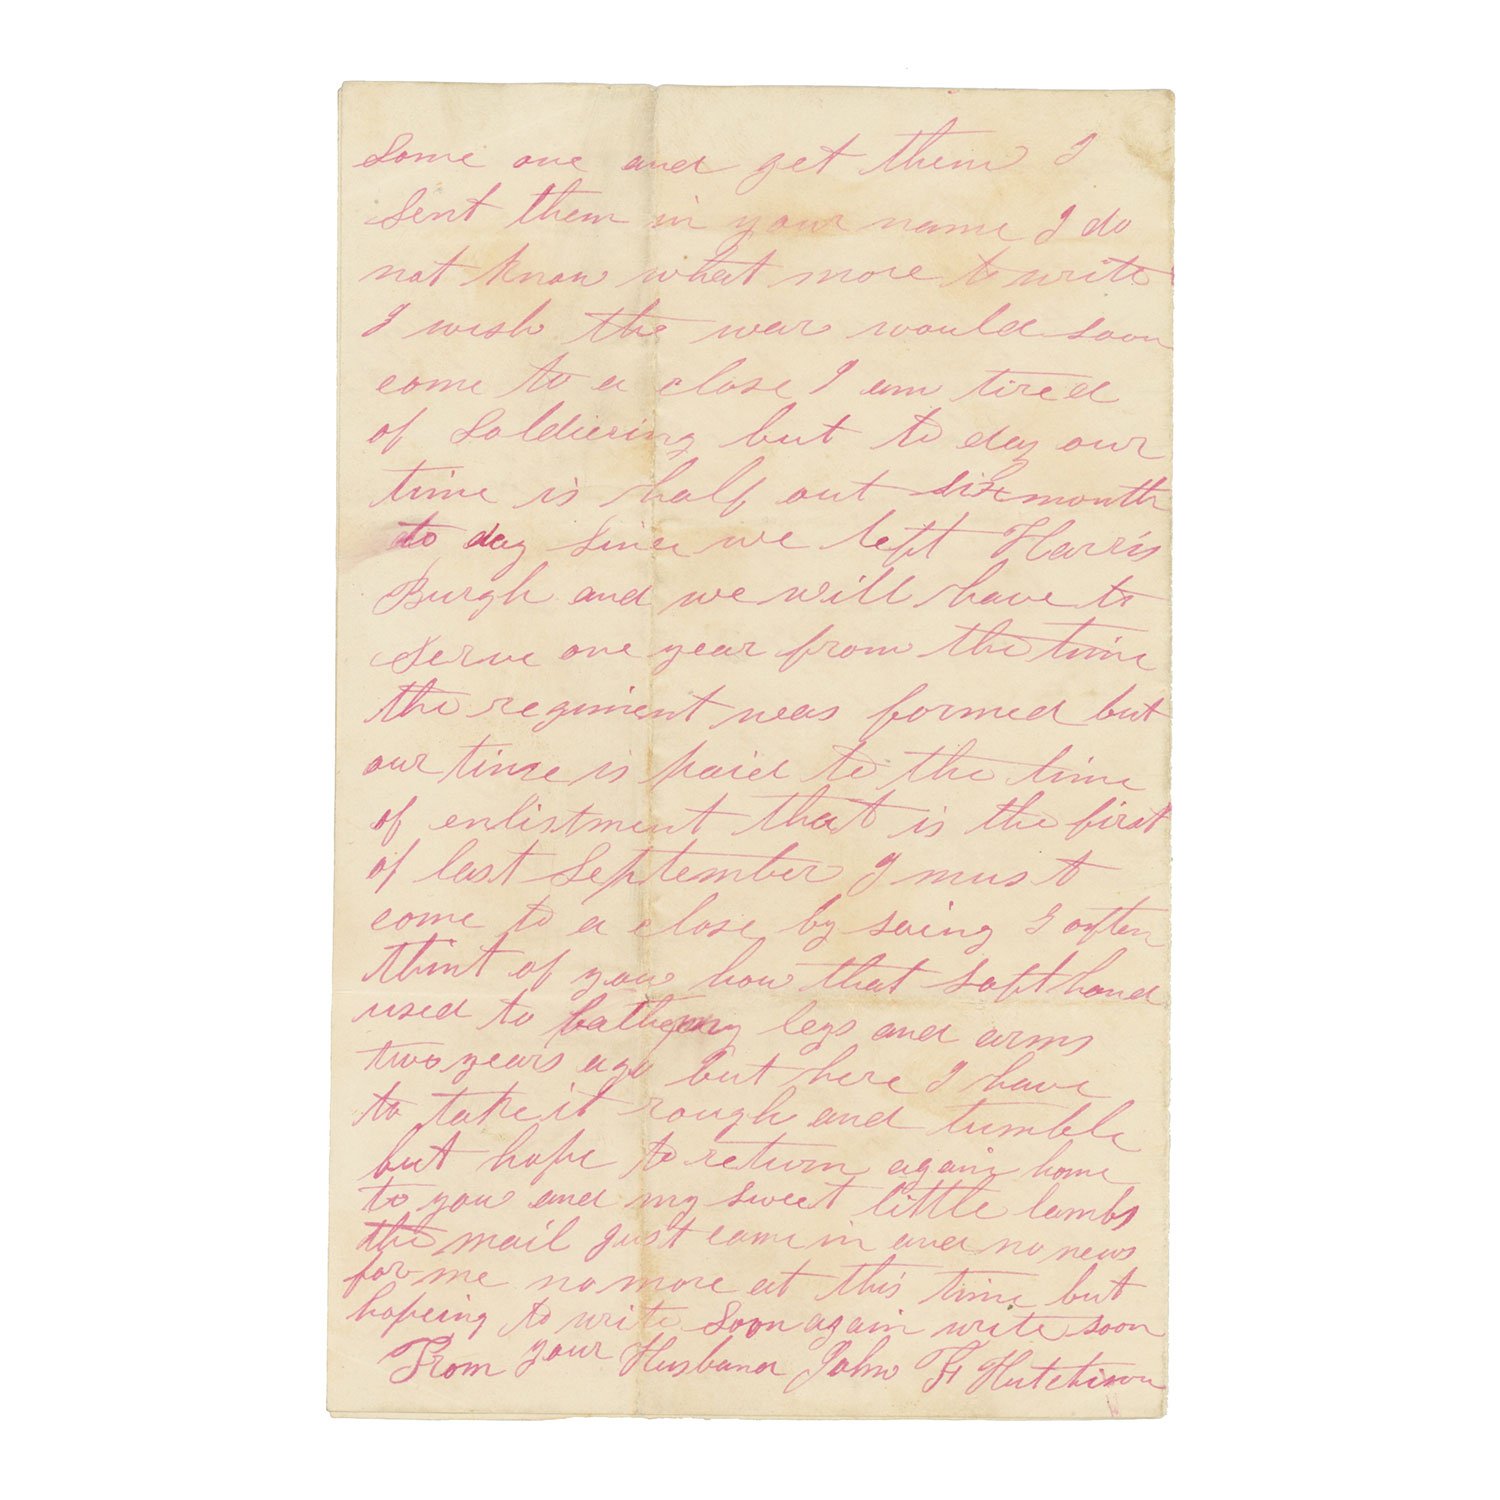 Some one and get them I
Sent them in your name I do
not know what more to write
I wish the war would soon
come to a close I am tired
of Soldiering but to day our
time is half out six month
to day Since we left Harris
Burgh and we will have to
Serve one year from the time
the regiment was formed but
our time is paid to the time
of enlistment that is the first
of last September I must
come to a close by saing I often
thint of you how that Soft hand
used to bathe my legs and arms
two years ago but here I have
to take it rough and tumble
but hope to return again home
to you and my sweet little lambs
the mail just came in and no news
for me no more at this time but
hopeing to write Soon again write soon
From your Husband John F Hutchison